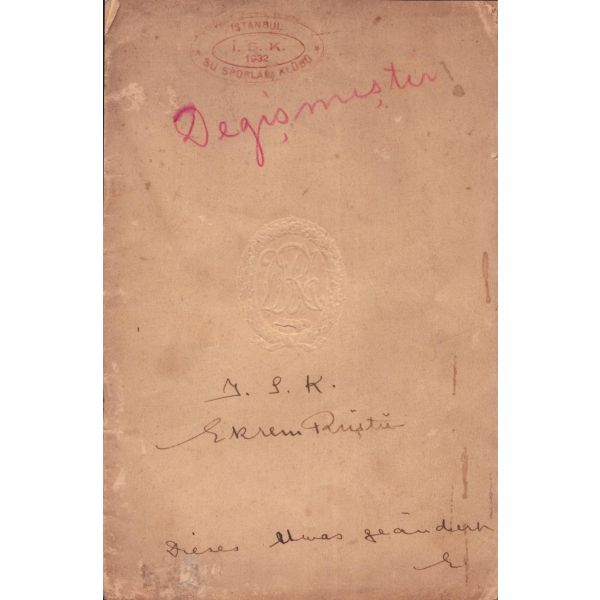 ISTANBUL
İ. S. K.
1932
SU SPORLARI KLÜBÜ
Degişmiştir
I. S. K.
Ekrem Rüştü
Dieses etwas geändert
E